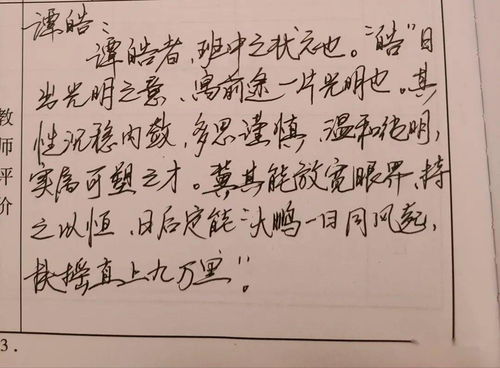 谭皓：
谭皓者，班中之状元也。"皓"日
出光明之意，寓前途一片光明也。其
性沉稳内敛，多思谨慎，温和聪明，
实属可塑之才。冀其能放宽眼界，持
之以恒，日后定能"大鹏一日同风起，
扶摇直上九万里"。
教师评价
3.